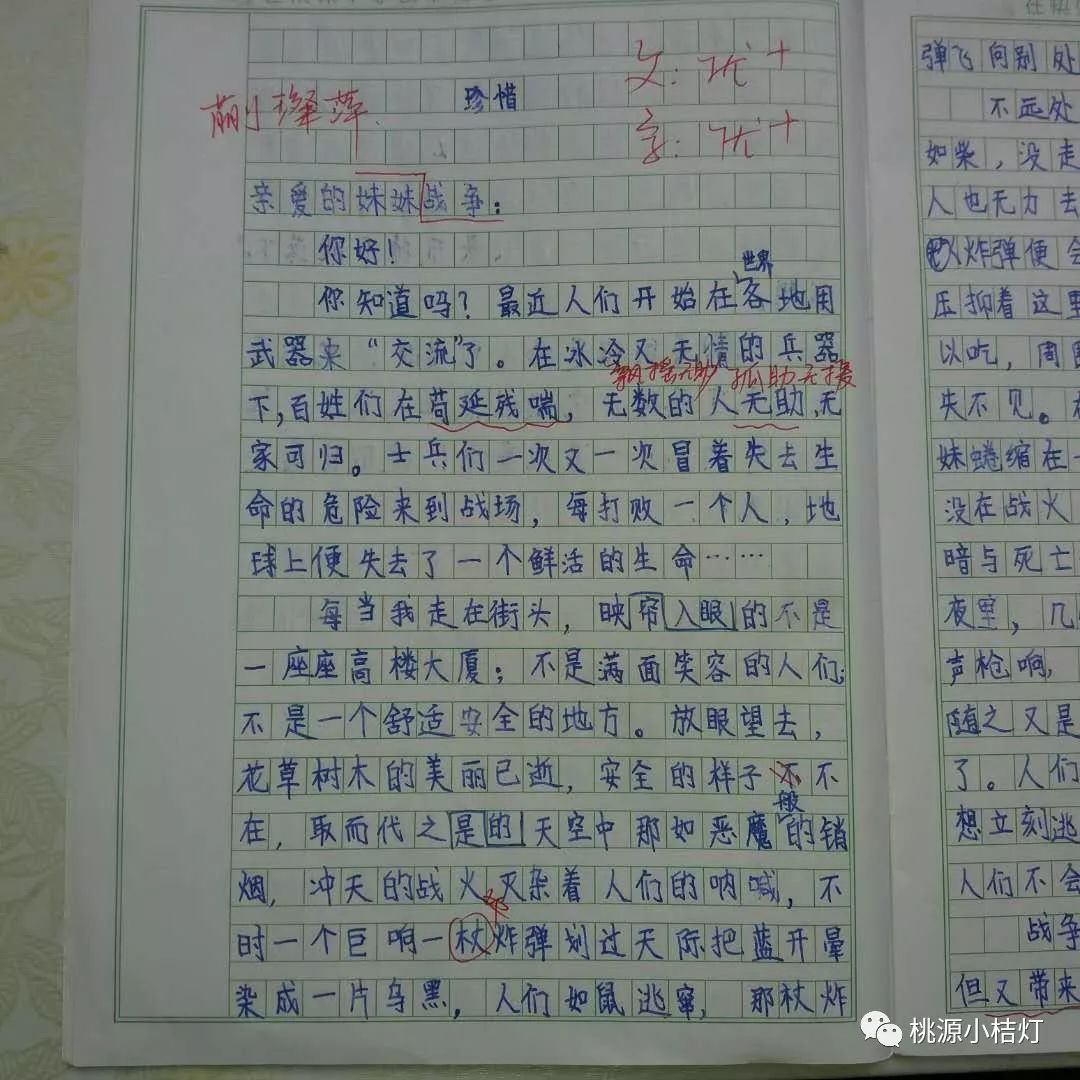 文：优+
珍惜
字：优+
亲爱的妹妹战争：
你好！
世界
你知道吗？最近人们开始在各地用
武器来“交流”了。在冰冷又无情的兵器
孤助无援
下，百姓们在苟延残喘，无数的人无助，无
家可归。士兵们一次又一次冒着失去生
命的危险来到战场，每打败一个人，地
球上便失去了一个鲜活的生命……
每当我走在街头，映帘入眼的不是
一座座高楼大厦；不是满面笑容的人们；
不是一个舒适安全的地方。放眼望去，
花草树木的美丽已逝，安全的样子不不
般
在，取而代之是的天空中那如恶魔的销
烟，冲天的战火灭杂着人们的呐喊，不
时一个巨响一杖炸弹划过天际把蓝开晕
染成一片乌黑，人们如鼠逃窜，那杖炸
弹飞向别处
不远处
如柴，没走
人也无力去
炸弹便会
压抑着这里
以吃，周围
失不见。
妹蜷缩在一
没在战火
暗与死亡
夜里，几
声枪响，
随之又是
了。人们
想立刻逃
人们不会
战争
但又带来
桃源小桔灯